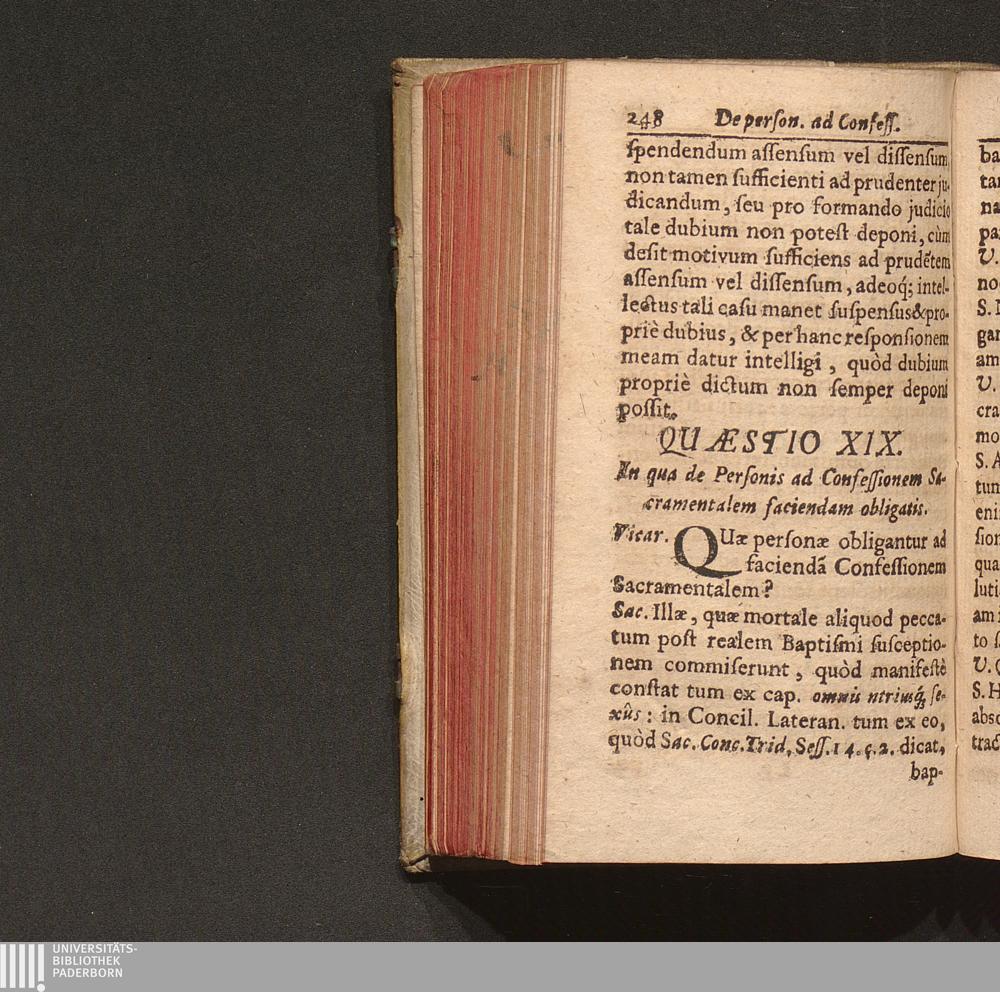 248 De perſon. ad Confeſſ.
ſpendendum aſſenſum vel diſſenſum,
non tamen ſufficienti ad prudenter ju-
dicandum, ſeu pro formando judicio
tale dubium non poteſt deponi, cùm
deſit motivum ſufficiens ad prudẽtem
aſſenſum vel diſſenſum, adeoq́; intel-
lectus tali caſu manet ſuſpenſus & pro-
priè dubius, & per hanc reſponſionem
meam datur intelligi, quòd dubium
propriè dictum non ſemper deponi
poſſit.
QUÆSTIO XIX.
In qua de Perſonis ad Confeſſionem Sa-
cramentalem faciendam obligatis.
Vicar. QUæ perſonæ obligantur ad
faciendã Confeſſionem
Sacramentalem?
Sac. Illæ, quæ mortale aliquod pecca-
tum poſt realem Baptiſmi ſuſceptio-
nem commiſerunt, quòd manifeſtè
conſtat tum ex cap. omnis utriusq́; ſe-
xûs: in Concil. Lateran. tum ex eo,
quòd Sac. Conc. Trid. Seſſ. 14. c. 2. dicat,
bap-
ba
tam
na
pa
V.
no
S.
gar
am
V.
cra
mo
S. A
tum
eni
ſion
qua
luti
am
to
V.
S. H
abſo
trac
UNIVERSITÄTS-
BIBLIOTHEK
PADERBORN